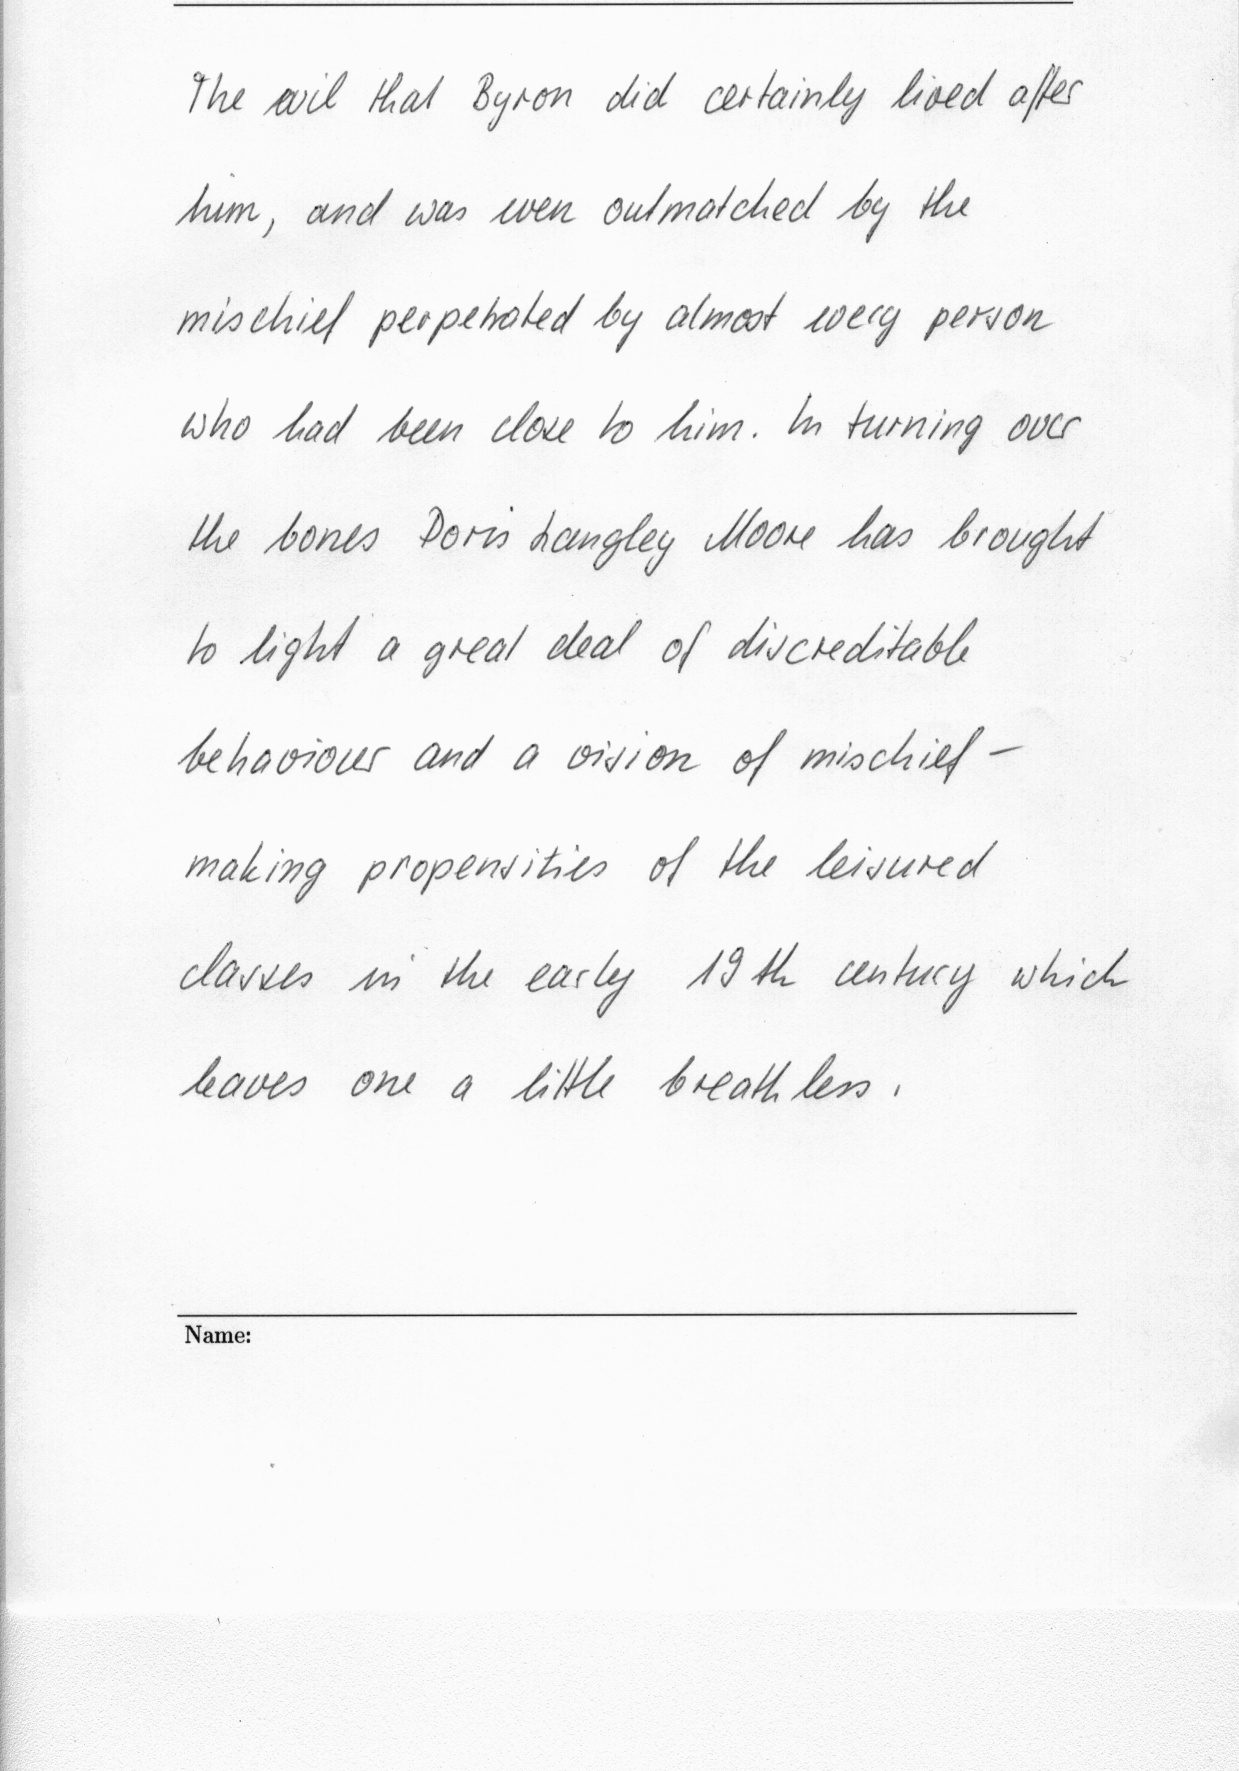 The evil that Byron did certainly lived after
him, and was even outmatched by the
mischief perpetrated by almost every person
who had been close to him. In turning over
the bones Doris Langley Moore has brought
to light a great deal of discreditable
behaviour and a vision of mischief-
making propensities of the leisured
classes in the early 19th century which
leaves one a little breathless.
Name: